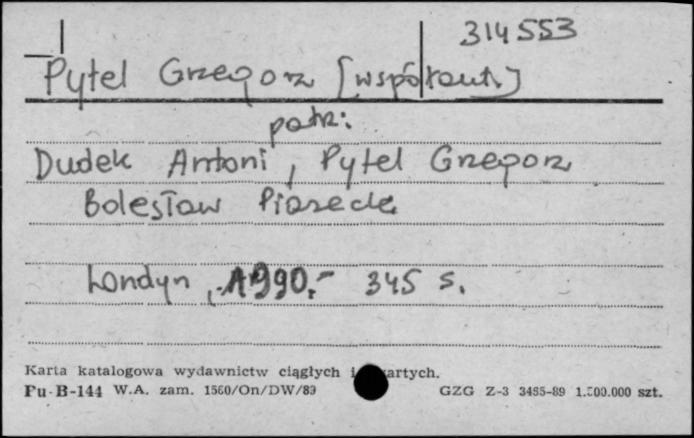 314553
Pytel Grzegorz [współaut.]
patrz:
Dudek Antoni, Pytel Grzegorz
Bolesław Piasecki
Londyn, 1990.- 345 s.
Karta katalogowa wydawnictw ciągłych i zwartych.
Pu-B-144 W.A. zam. 1560/On/DW/89 GZG Z-3 3455-89 1.500.000 szt.